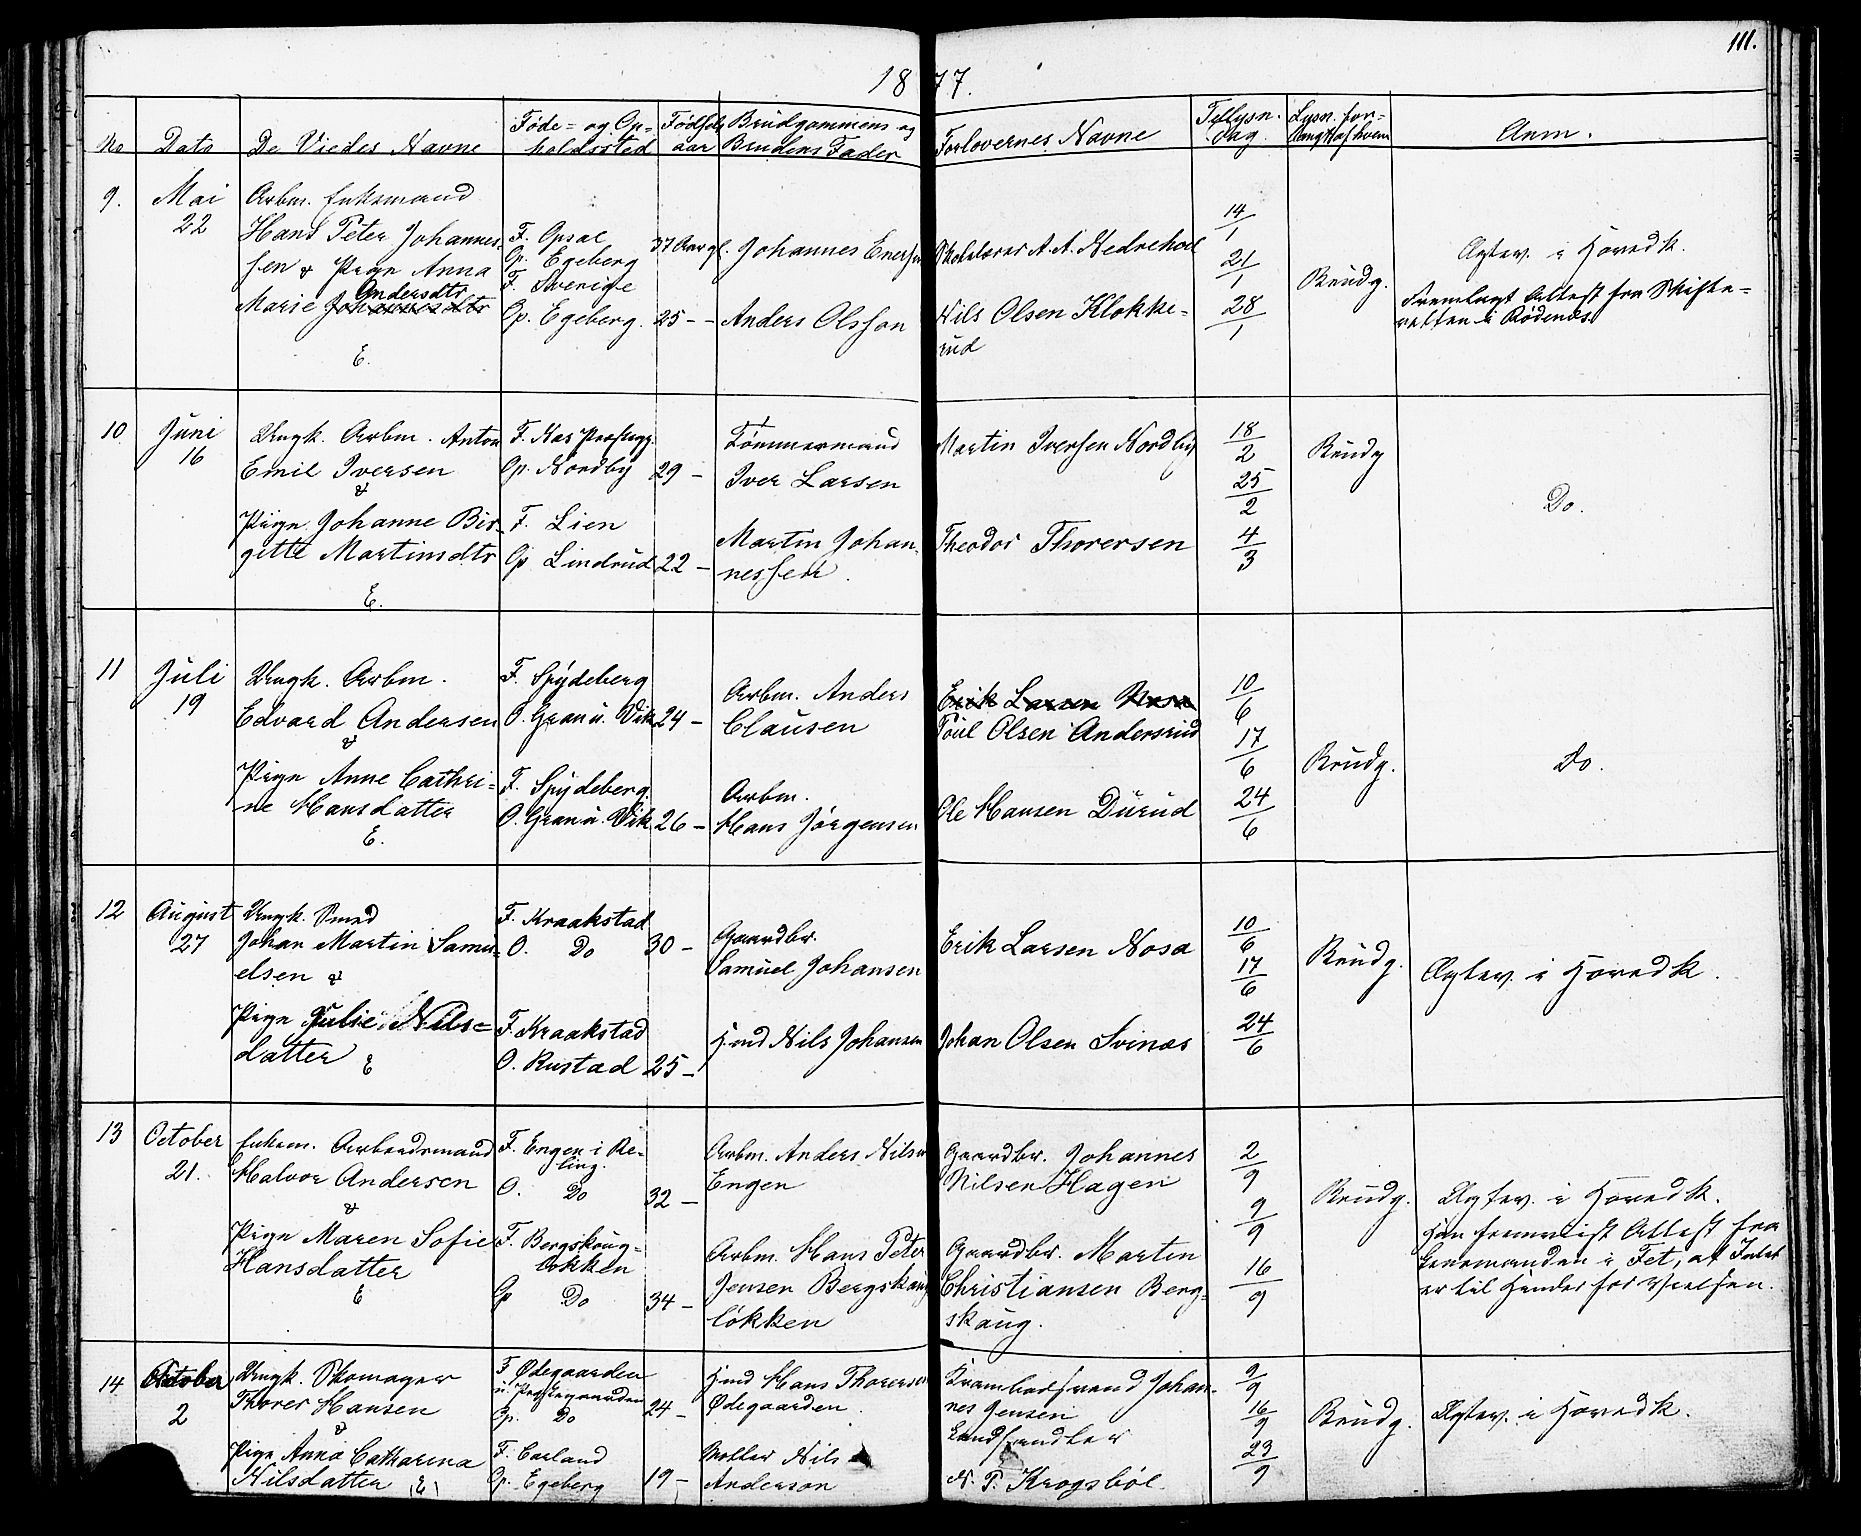 111.
1877.
No
Dato
De Viedes Navne
Føde= og Op=
holdssted
Fødsels
aar
Brudgommens og
Brudens Fader
Forlovernes Navne
Tillysn.
dag.
Lysn. for=
langt af hvem
Anm.
9.
Mai
22
Arbm. Enkemand
Hans Peter Johannes=
sen & Pige Anna
Andersdtr
Marie Johannesdtr
E.
F. Opsal
Op. Egeberg
F. Sverige
Op. Egeberg.
37 Aar gl.
25 - -
Johannes Enersen
Anders Olsson
Skolelærer A. A. Nedrehoel
Nils Olsen Klokke=
rud
14/1
21/1
28/1
Brudg.
Ægtev. i Hovedk.
Fremlagt Attest fra Skifte=
retten i Rødenæs.
10
Juni
16
Ungk. Arbm. Anton
Emil Iversen
&
Pige Johanne Bir=
gitte Martinsdtr
E.
F. Aas Præstegg.
Op. Nordby
F. Lien
Op Lindrud
29 -
22 -
Tømmermand
Iver Larsen
Martin Johan=
nessen.
Martin Iversen Nordby
Theodor Thorersen
18/2
25/2
4/3
Brudg
Do.
11
Juli
19
Ungk. Arbm.
Edvard Andersen
&
Pige Anne Cathri=
ne Hansdatter
E.
F. Spydeberg
O. Gran u. Vik
F. Spydeberg.
O. Gran u. Vik
24 -
26 -
Arbm. Anders
Clausen
Arbm.
Hans Jørgensen
Erik Larsen Nosa
Poul Olsen Andersrud
Ole Hansen Durud
10/6
17/6
24/6
Brudg.
Do.
12
August
27
Ungk. Smed
Johan Martin Samu=
elsen &
Pige Julie Nils=
datter
E
F. Kraakstad
O. Do
F. Kraakstad
O. Rustad
30 -
25 -
Gaardbr.
Samuel Johansen
Hmd Nils Johansen
Erik Larsen Nosa
Johan Olsen Svinæs
10/6
17/6
24/6
Brudg.
Ægtev. i Hovedk.
13
October
21.
Enkem. Arbeidsmand
Halvor Andersen
&
Pige Maren Sofie
Hansdatter
E
F. Engen i Re=
ling.
O. Do
F. Bergskoug=
løkken
Op Do
32 -
34 -
Arbm. Anders Nilsen
Engen
Arbm. Hans Peter
Jensen Bergskaug
løkken
Gaardbr. Johannes
Nilsen Hagen
Gaardbr. Martin
Christiansen Berg=
skaug.
2/9
9/9
16/9
Brudg.
Ægtev. i Hovedk.
Han fremviist Attest fra
Lensmanden i Fet, at Intet
er til Hinder for Vielsen.
14
October
2
Ungk. Skomager
Thorer Hansen
&
Pige Anna Catharina
Nilsdatter E
F Ødegaarden
u. Præstegaarden
Op. Do
F. Carland
Op. Egeberg
24 -
19 -
Hmd Hans Thorersen
Ødegaarden.
Møller Nils
Anderson
Krambodsvend Johan=
nes Jensen
Landhandler
N. P. Krogsbøl.
9/9
16/9
23/9
Brudg.
Ægtev. i Hovedk.